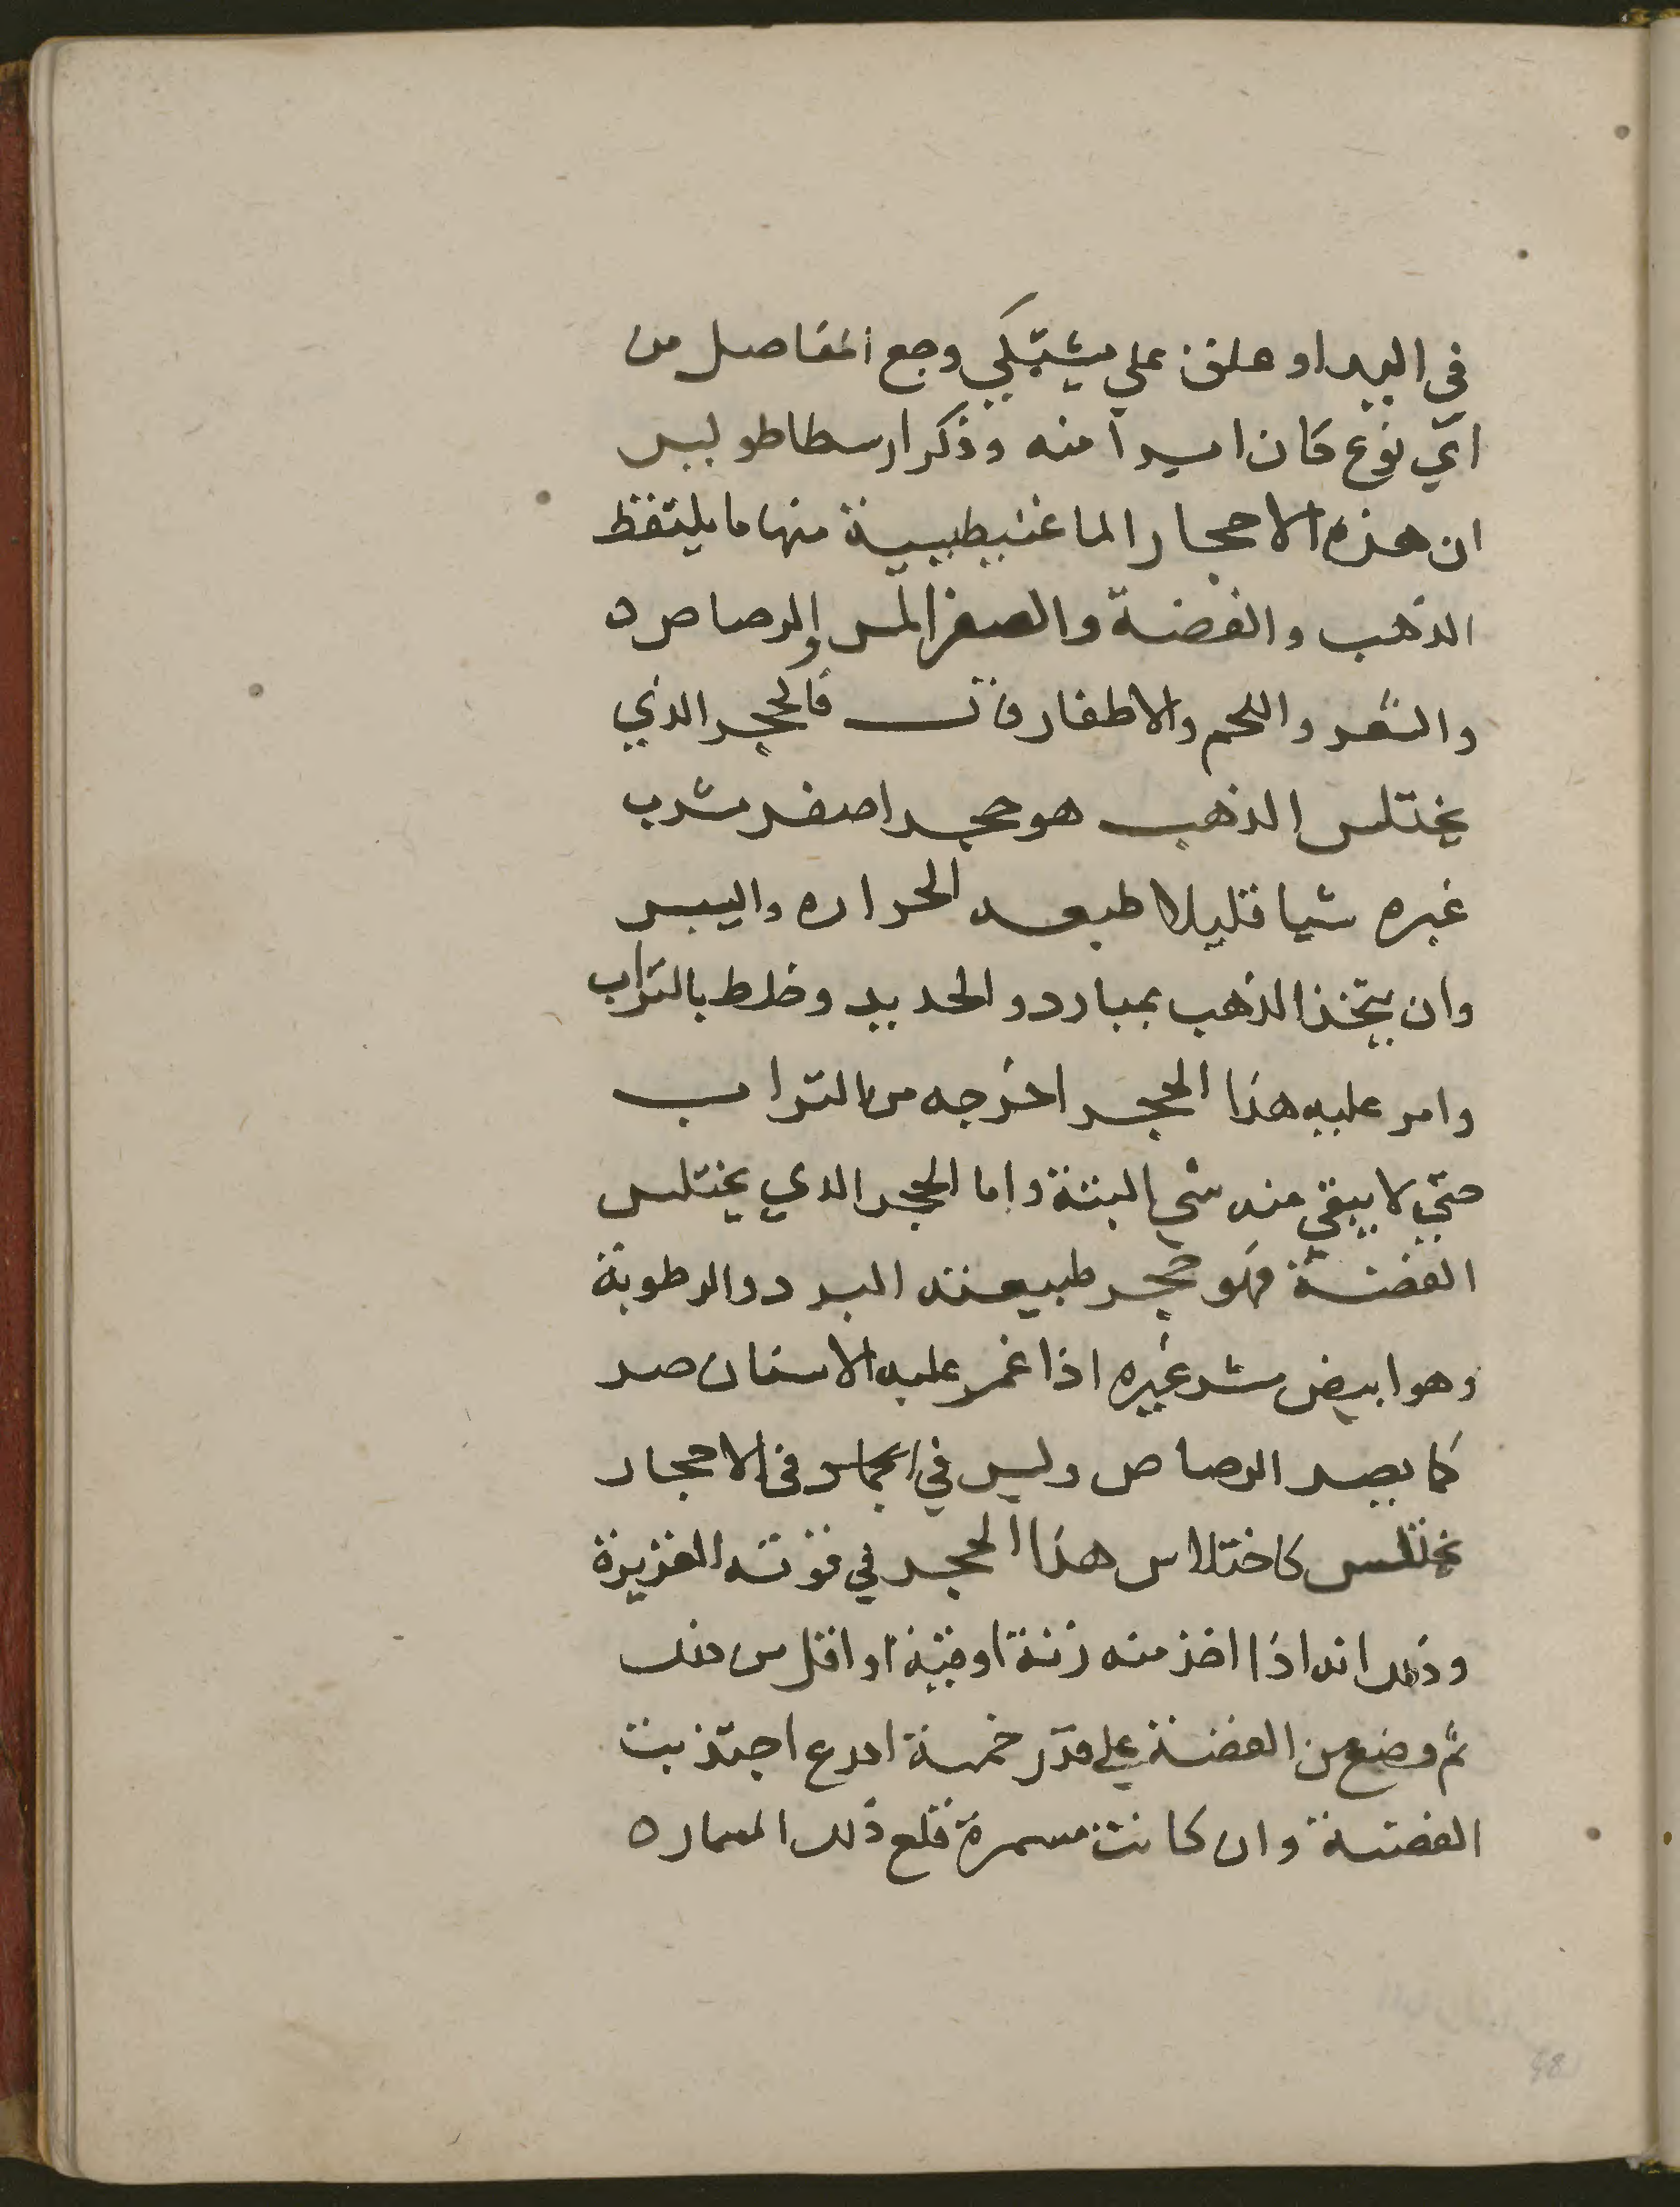 في اليد او علق علي يشتكي وجع المفاصل من
اي نوع كان ابرا منه وذكر ارسطاطوليس
ان هذه الاحجار الماغنيطيسية منها ما يلتقط
الذهب والفضة والصفر المس والرصاص ه
والشعر واللحم والاظفار قال فالحجر الذي
يختلس الذهب هو حجر اصفر مشرب
غبره شيا قليلا طبعه الحراره واليبس
وان يتخذ الذهب بمبارد والحديد وخلط بالتراب
وامر عليه هذا الحجر اخرجه من التراب
حتي لا يبقي منه شي البتة واما الحجر الذي يختلس
الفضة فهو حجر طبيعته البرد والرطوبة
وهو ابيض مشر غبره اذا غمز عليه الاسنان صر
كما يصر الرصاص وليس في في الاحجار
يختلس كاختلاس هذا الحجر في قوته الغزيزة
وذلك انه اذا اخذ منه زنة اوقية او اقل من ذلك
ثم وضع من الفضة علي قدر خمسة ادرع اجتذبت
الفضة وان كانت مسمرة قلع ذلك المسمار ه
48